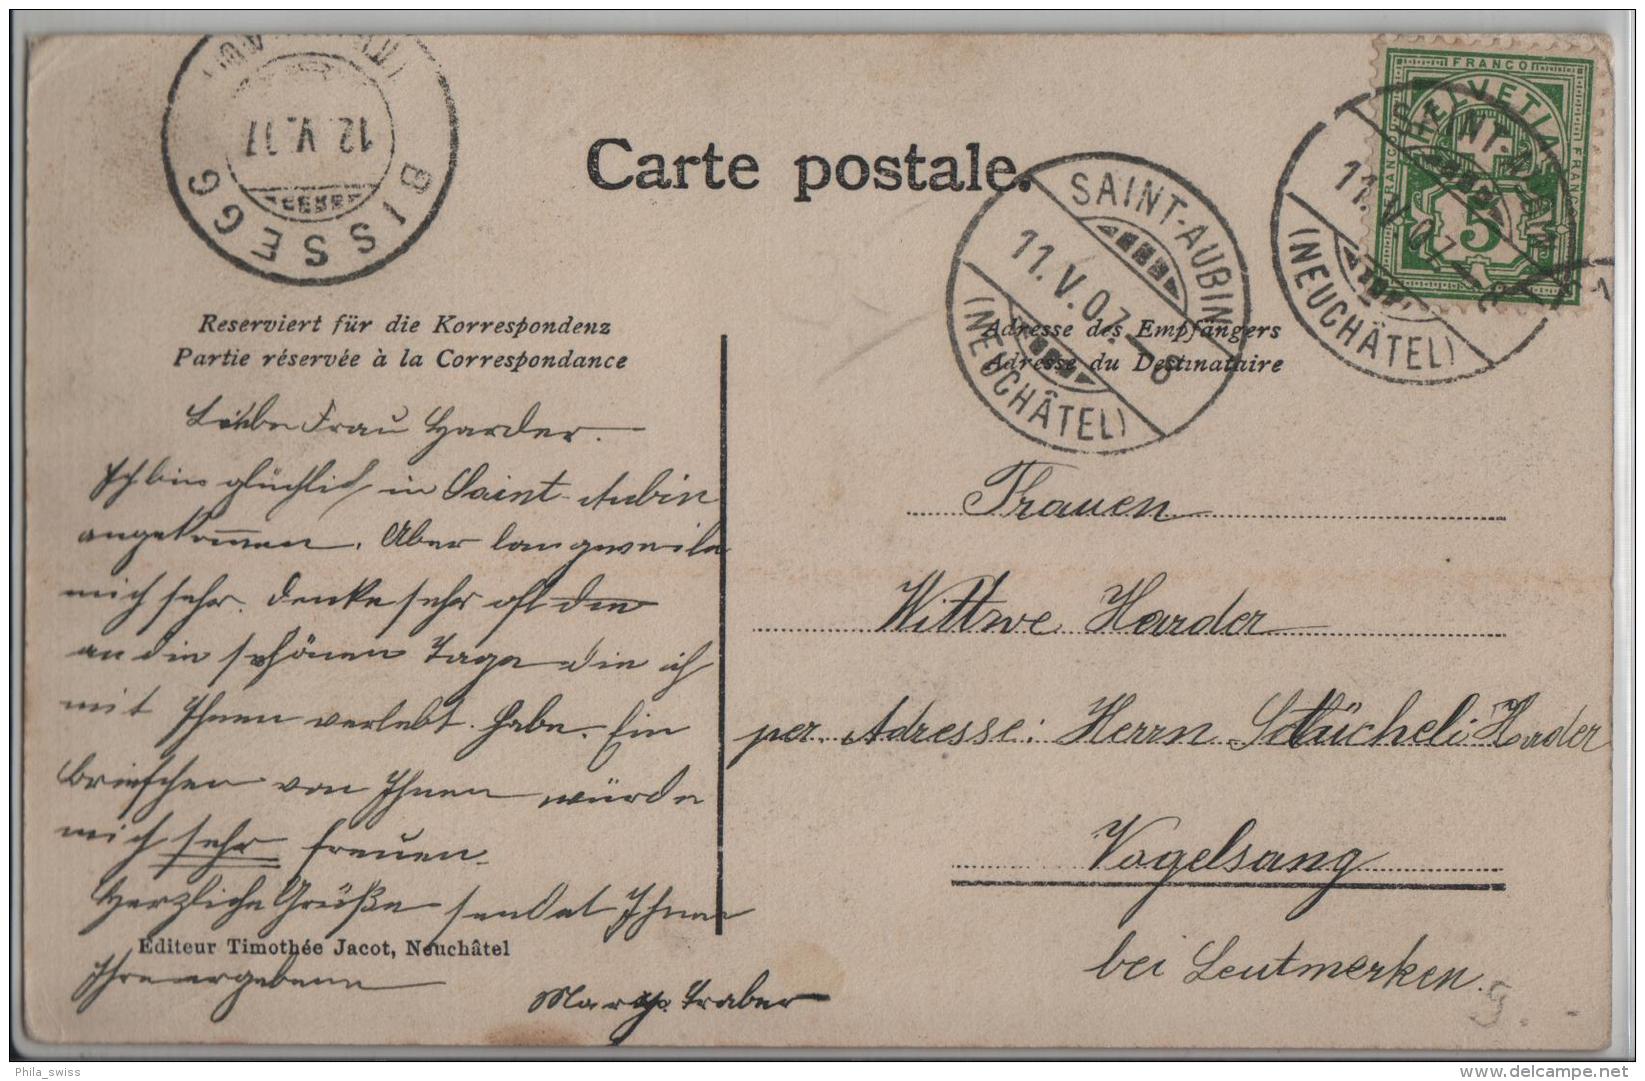 BISSEGG
12.V.07
Carte postale.
SAINT-AUBIN
11.V.07.-8
(NEUCHÂTEL)
FRANCO
HELVETIA
FRANCO
FRANCO
5
SAINT-AUBIN
11.V.07.-8
(NEUCHÂTEL)
Reserviert für die Korrespondenz
Partie réservée à la Correspondance
Adresse des Empfängers
Adresse du Destinataire
Liebe Frau Harder.
Ich bin glücklich in Saint-Aubin
angekommen. Aber langweile
mich sehr. Denke sehr oft
an die schönen Tage die ich
mit Ihnen verlebt habe. Ein
Briefchen von Ihnen würde
mich sehr freuen.
Herzliche Grüße sendet Ihnen
Ihre ergebene
Mary Traber
Editeur Timothée Jacot, Neuchâtel
Frauen
Wittwe Harder
per. Adresse: Herrn Stücheli Harder
Vogelsang
bei Leutmerken.
Phila_swiss
www.delcampe.net